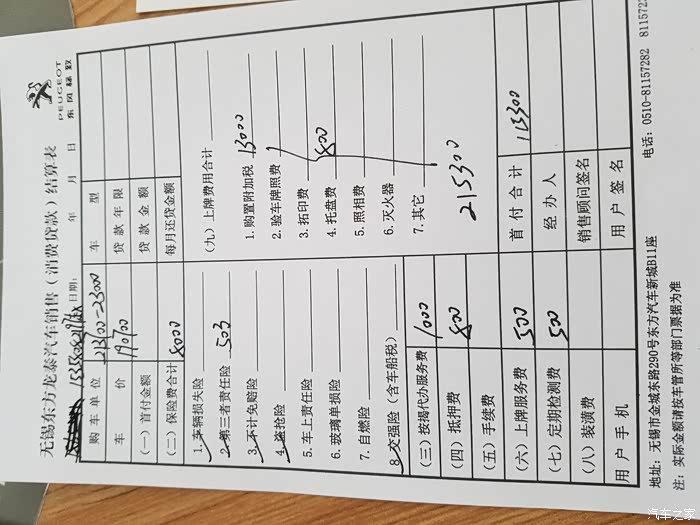 无锡东方龙泰汽车销售（消费贷款）结算表
PEUGEOT
东风标致
日期： 年 月 日
购车单位 213700-23000 车型
车价 190700 贷款年限
（一）首付金额 贷款金额
（二）保险费合计 8000 每月还贷金额
1.车辆损失险
2.第三者责任险 50万
3.不计免赔险
4.盗抢险
5.车上责任险
6.玻璃单损险
7.自燃险
8.交强险（含车船税）
（九）上牌费用合计
1.购置附加税 13000
2.验车牌照费
3.拓印费
4.托盘费 800
5.照相费
6.灭火器
7.其它
215300
（三）按揭代办服务费 1000
（四）抵押费 800
（五）手续费
（六）上牌服务费 500 首付合计 113300
（七）定期检测费 500 经办人
（八）装潢费 销售顾问签名
用户手机 用户签名
地址：无锡市金城东路290号东方汽车新城B11座 电话：0510-81157282 8115723
注：实际金额请按车管所等部门票据为准
汽车之家